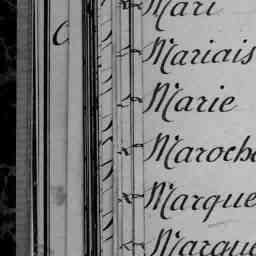 Mari
Mariais
Marie
Maroche
Marque
Marque